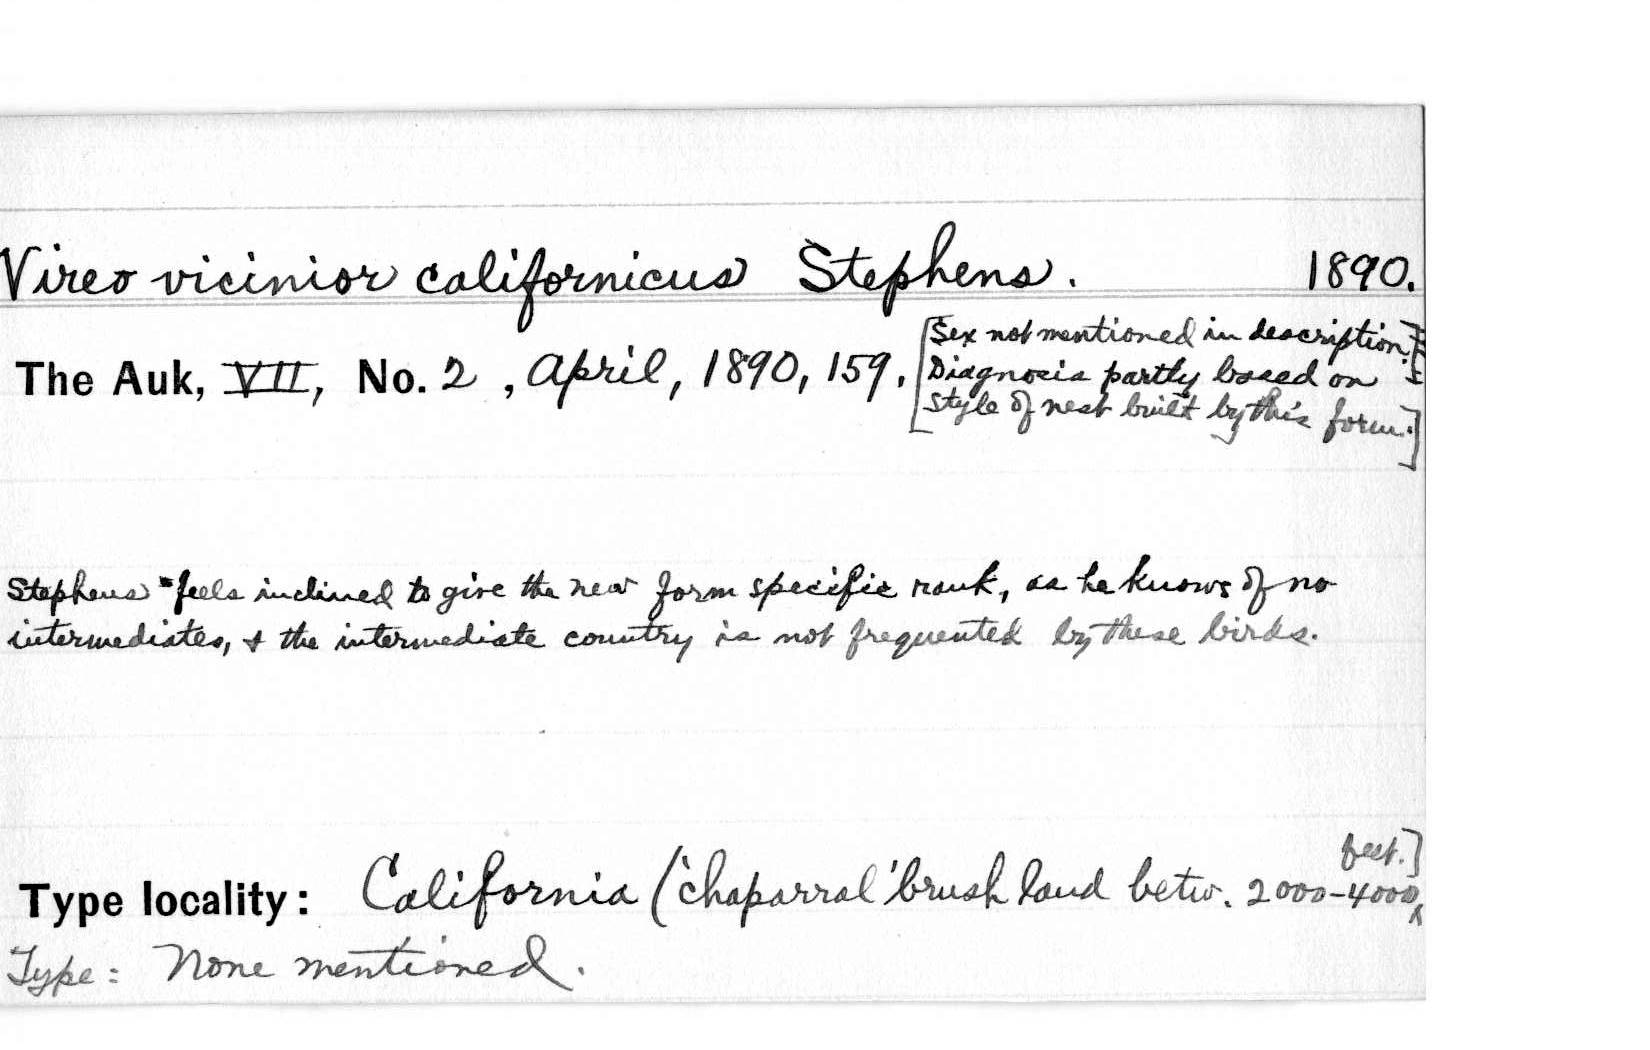 Vireo vicinior californicus Stephens. 1890.
The Auk, VII, No. 2, April, 1890, 159. [Sex not mentioned in description.]
[Diagnosis partly based on
style of nest built by this form.]
Stephens "feels inclined to give the new form specific rank, as he knows of no
intermediates, & the intermediate country is not frequented by these birds.
Type locality: California ('chaparral' brush land betw. 2000-4000 feet.]
Type: None mentioned.